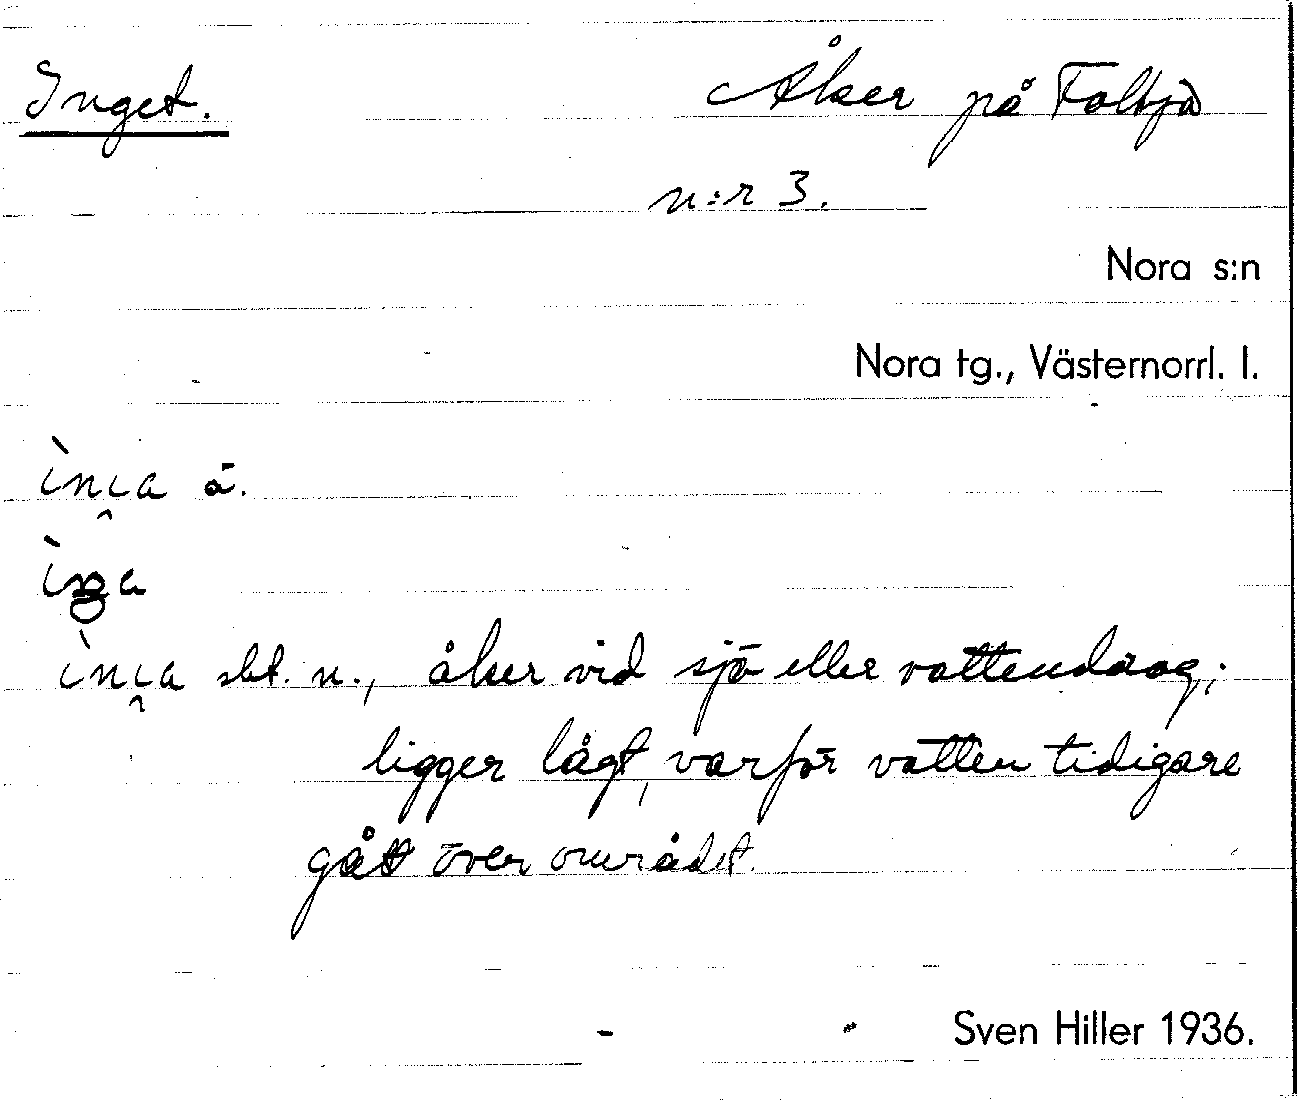 Inget.
Åker på Faltjä
n:r 3.
Nora s:n
Nora tg., Västernorrl. l.
sbt. n., åker vid sjö eller vattendrag;
ligger lågt, varför vatten tidigare
gått över området.
Sven Hiller 1936.